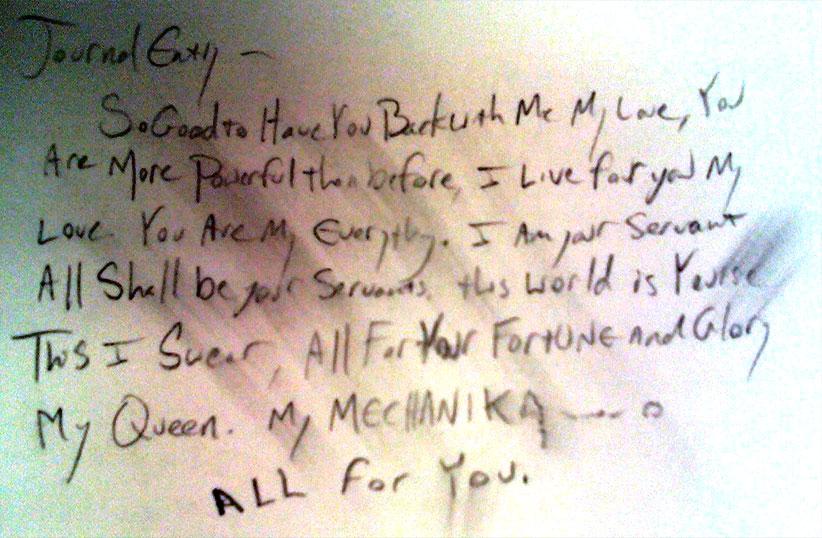 Journal Entry —
So Good to Have You Back with Me My Love, You
Are More Powerful than before, I Live for you My
Love. You Are My Everything. I Am your Servant
All Shall be your Servants, this world is Yours
This I Swear, All For Your FORTUNE and Glory
My Queen. My MECHANIKA
ALL For You.